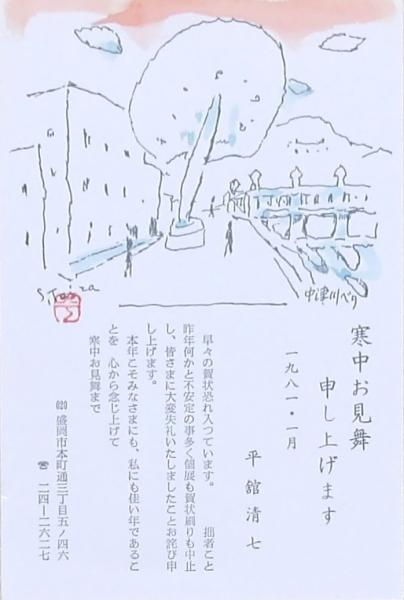 中津川べり
寒中お見舞
申し上げます
一九八一・一月
平舘清七
早々の賀状恐れ入つています。 拙者こと
昨年何かと不安定の事多く個展も賀状刷りも中止
し、皆さまに大変失礼いたしましたことお詫び申
し上げます。
本年こそみなさまにも、私にも佳い年であるこ
とを 心から念じ上げて
寒中お見舞まで
盛岡市本町通三丁目五ノ四六
☎ 二四ー二六二七